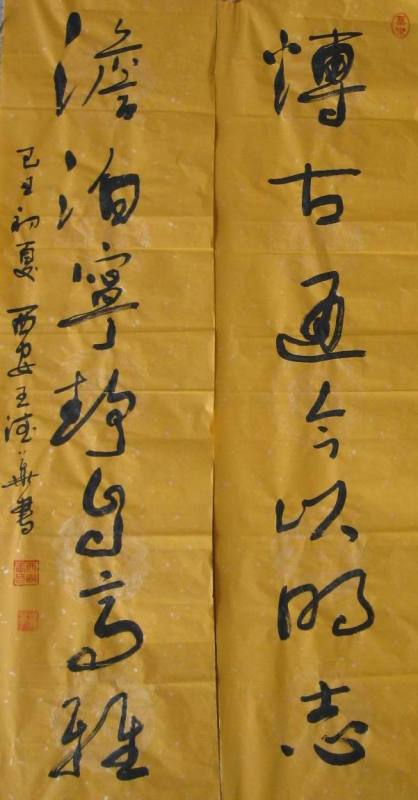 博古通今以明志
澹泊寧静自高雅
己丑初夏西安王德华書